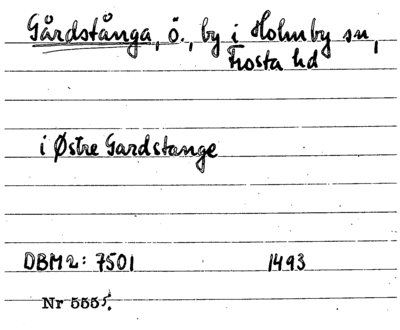 Gårdstånga, ö., by i Holmby sn,
Frosta hd
i Østre Gardstange
DBM 2: 7501 1493
Nr 5555.